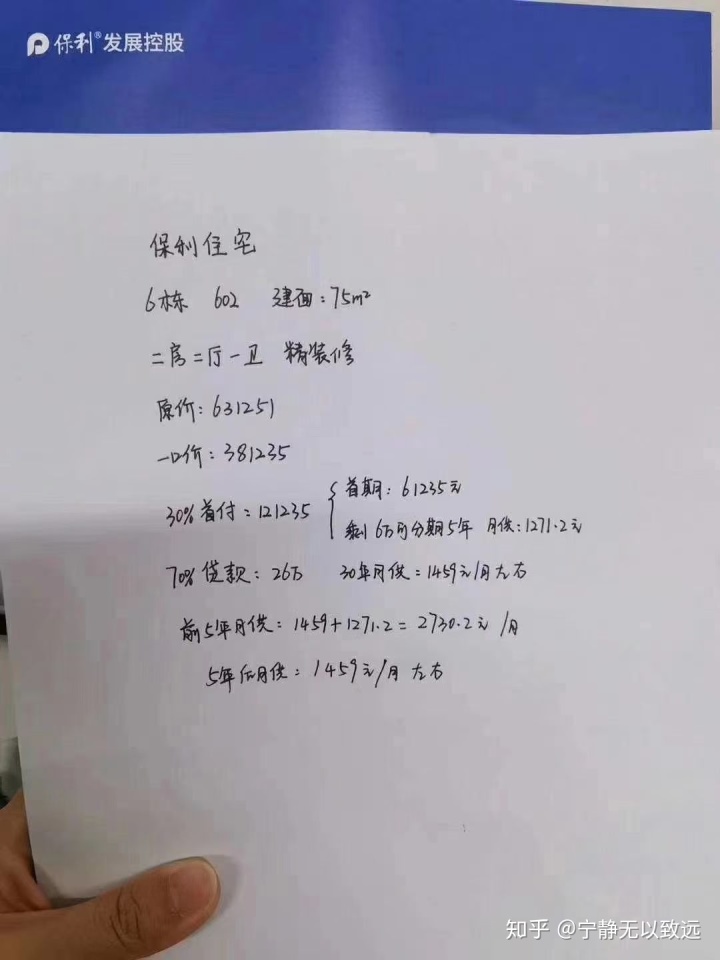 保利®发展控股
保利住宅
6栋 602 建面：75m²
二房二厅一卫 精装修
原价：631251
一口价：381235
30%首付：121235
首期：61235元
剩6万可分期5年 月供：1271.2元
70%贷款：26万 30年月供：1459元/月左右
前5年月供：1459+1271.2=2730.2元/月
5年后月供：1459元/月左右
知乎 @宁静无以致远